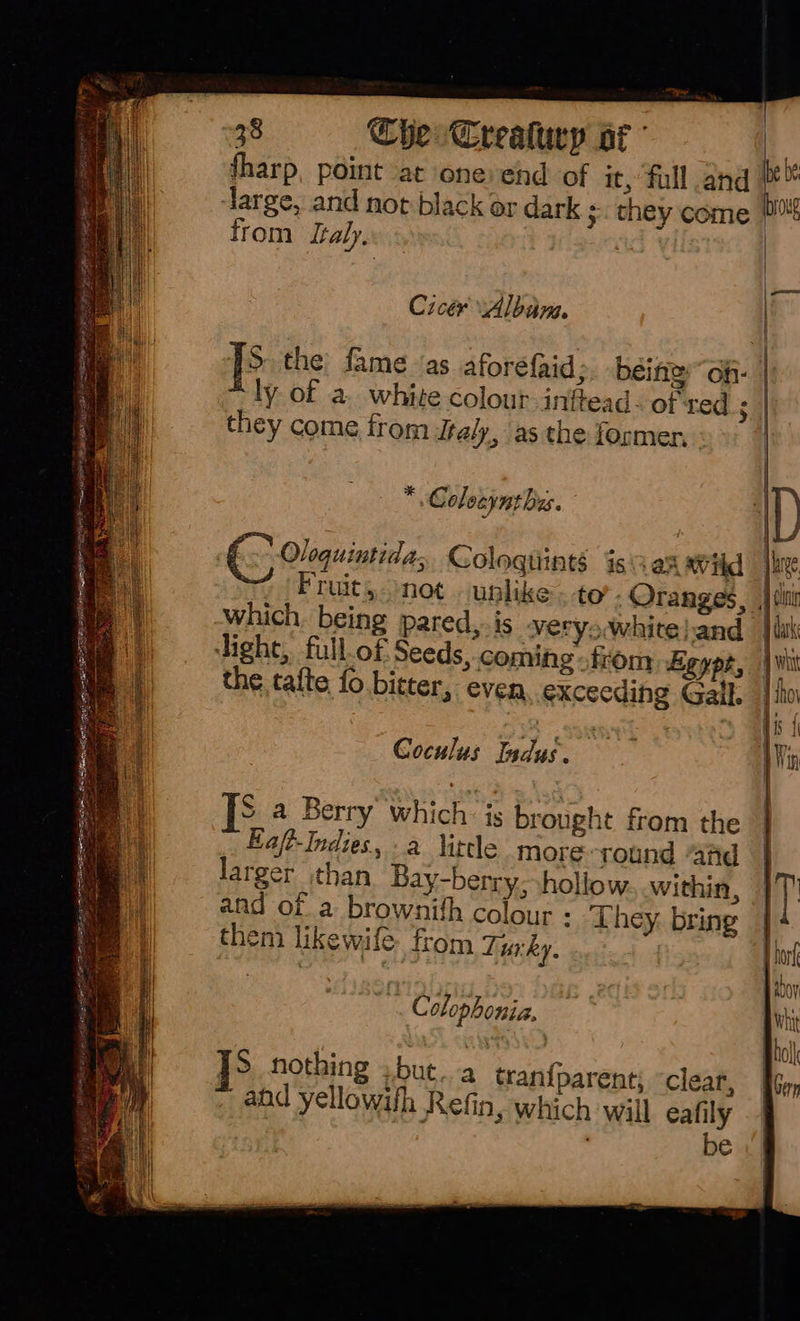 38 The Treasury of
ſharp point at one end of it, full and
large, and not black or dark; they come
from Italy.
Cicer Album.
IS the ſame as aforeſaid; being on-
ly of a white colour inſtead of red;
they come from Italy, as the former.
* Colocynthis.
COloquintida, Coloquints is a wild
Fruit, not unlike to Oranges,
which being pared, is very white and
light, full of Seeds, coming from Egypt,
the taſte ſo bitter, even exceeding Gall.
Coculus Indus.
IS a Berry which is brought from the
Eaſt-Indies, a little more round and
larger than Bay-berry, hollow within,
and of a browniſh colour: They bring
them likewiſe from Turky.
Colophonia.
IS nothing but a tranſparent, clear,
and yellowiſh Reſin, which will eaſily
be